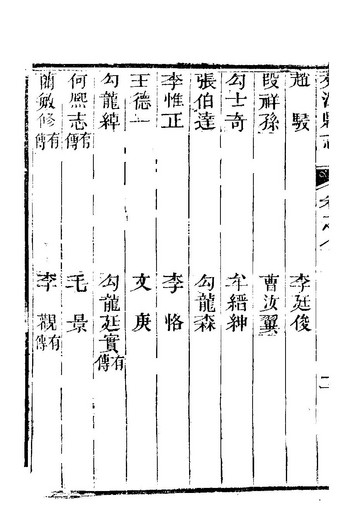 縣志 二
趙駿 李廷俊
段祥孫 曹汝翼
勾士奇 牟縉紳
張伯達 勾龍森
李惟正 李恪
王德一 文庚
勾龍綽 勾龍廷實有傳
何熙志有傳 毛景
敏修有傳 李觀有傳